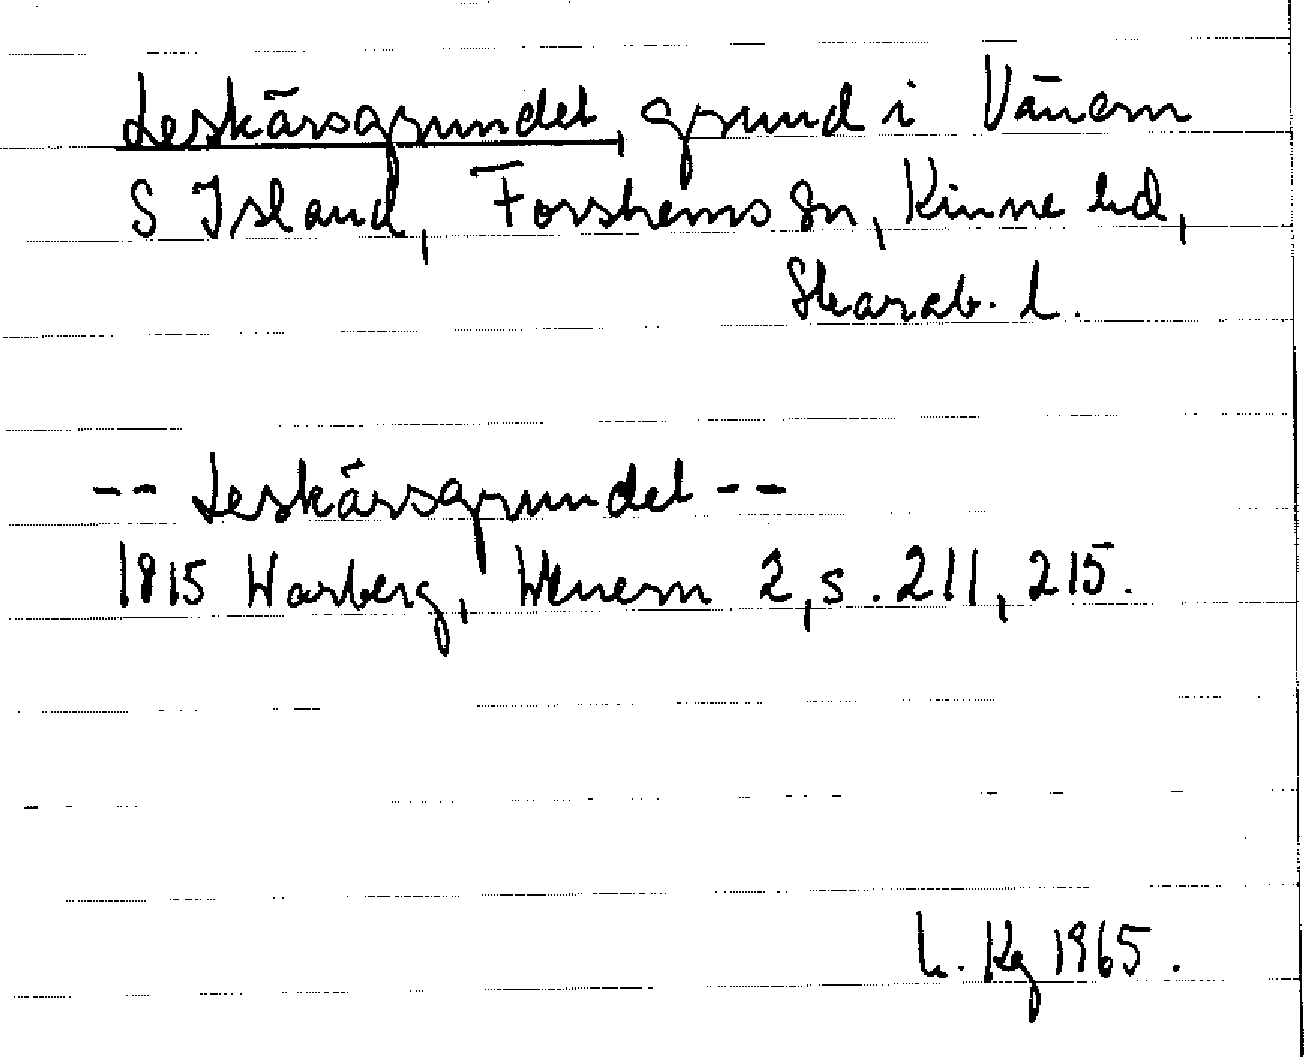 Leskärsgrundet, grund i Vänern
S Island, Forshems sn, Kinne hd,
Skarab. l.
-- Leskärsgrundet --
1815 Warberg, Wenern 2, s. 211, 215.
h. Kg 1965.